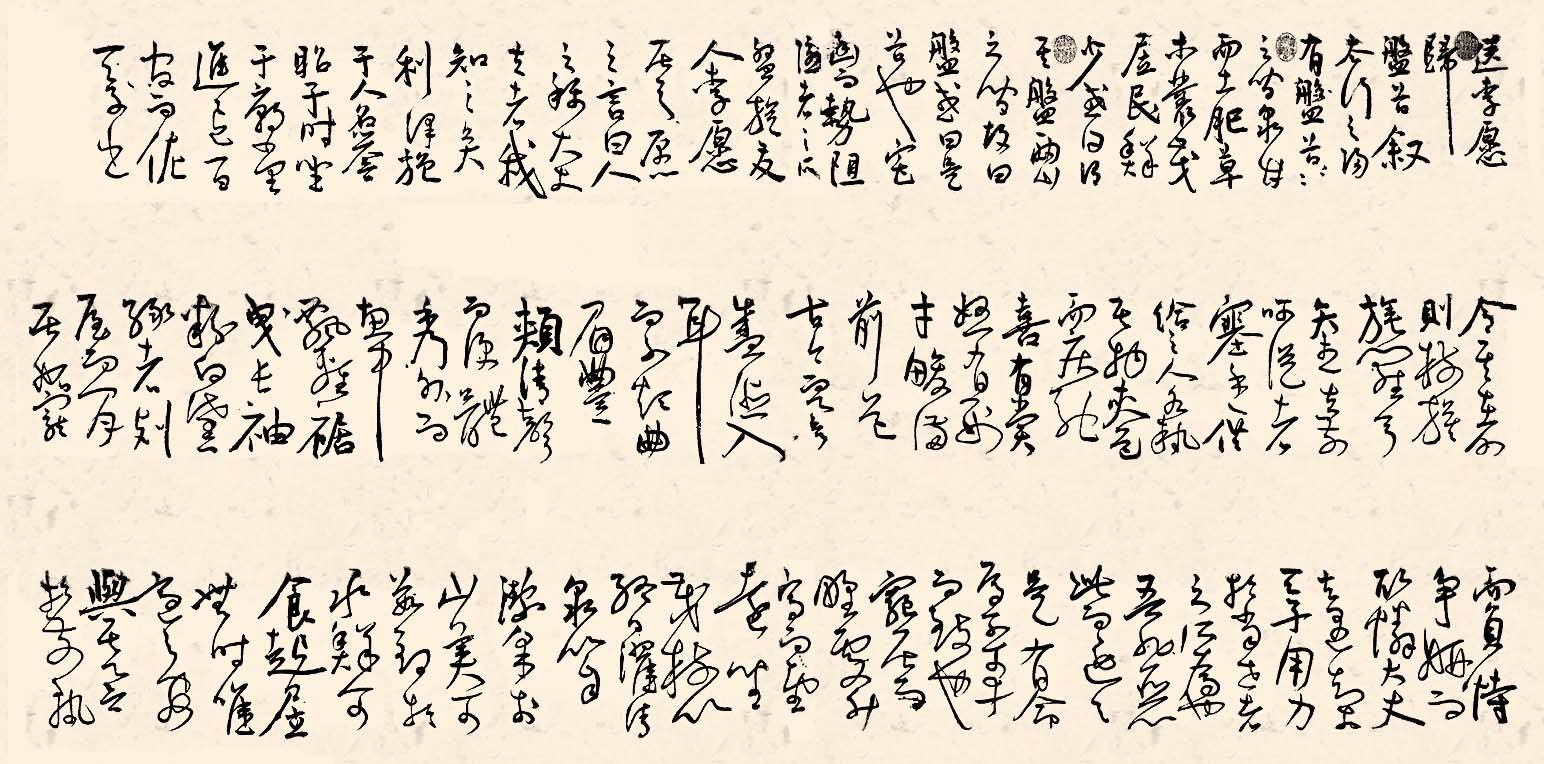 送李愿
歸
盤谷叙
太行之陽
有盤谷〻〻
之間泉甘
而土肥草
木叢茂
居民鮮
少或曰謂
其盤兩山
之間故曰
盤或曰是
谷也宅
幽而勢阻
隱者之所
盤旋友
人李愿
居之愿
之言曰人
之稱大丈
夫者我
知之矣
利澤施
于人名譽
昭于時坐
于廟堂
進退百
官而佐
天子出
令其在外
則樹旗
旄羅弓
矢武夫前
呵從者
塞途供
給之人各執
其物夾道
而疾馳
喜有賞
怒有刑
才畯滿
前道
古今而譽
盛德入
耳
而不煩曲
眉豐
頰清聲
而便體
秀外而
惠中
飄輕裾
曳長袖
粉白黛
綠者列
屋而閒
居妒寵
而負恃
爭妍而
取憐大丈
夫遇知於
天子用力
於當世者
之所為也
吾非惡
此而逃之
是有命
焉不可幸
而致也
窮居而
野處升
高而望
遠坐
茂樹以
終日濯清
泉以自
潔采於
山美可
茹釣於
水鮮可
食起居
無時惟
適之安
與其有譽
於前孰